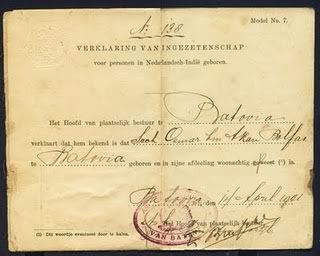 No. 138
Model No. 7.
VERKLARING VAN INGEZETENSCHAP
voor personen in Nederlandsch-Indië geboren.
Het Hoofd van plaatselijk bestuur te Batavia
verklaart dat hem bekend is dat Said Oemar bin Akan Balfas
te Batavia geboren en in zijne afdeeling woonachtig geweest (1) is.
Batavia, den April
Het Hoofd van plaatselijk bestuur,
VAN BATAVIA
(1) Dit woordje eventueel door te halen.